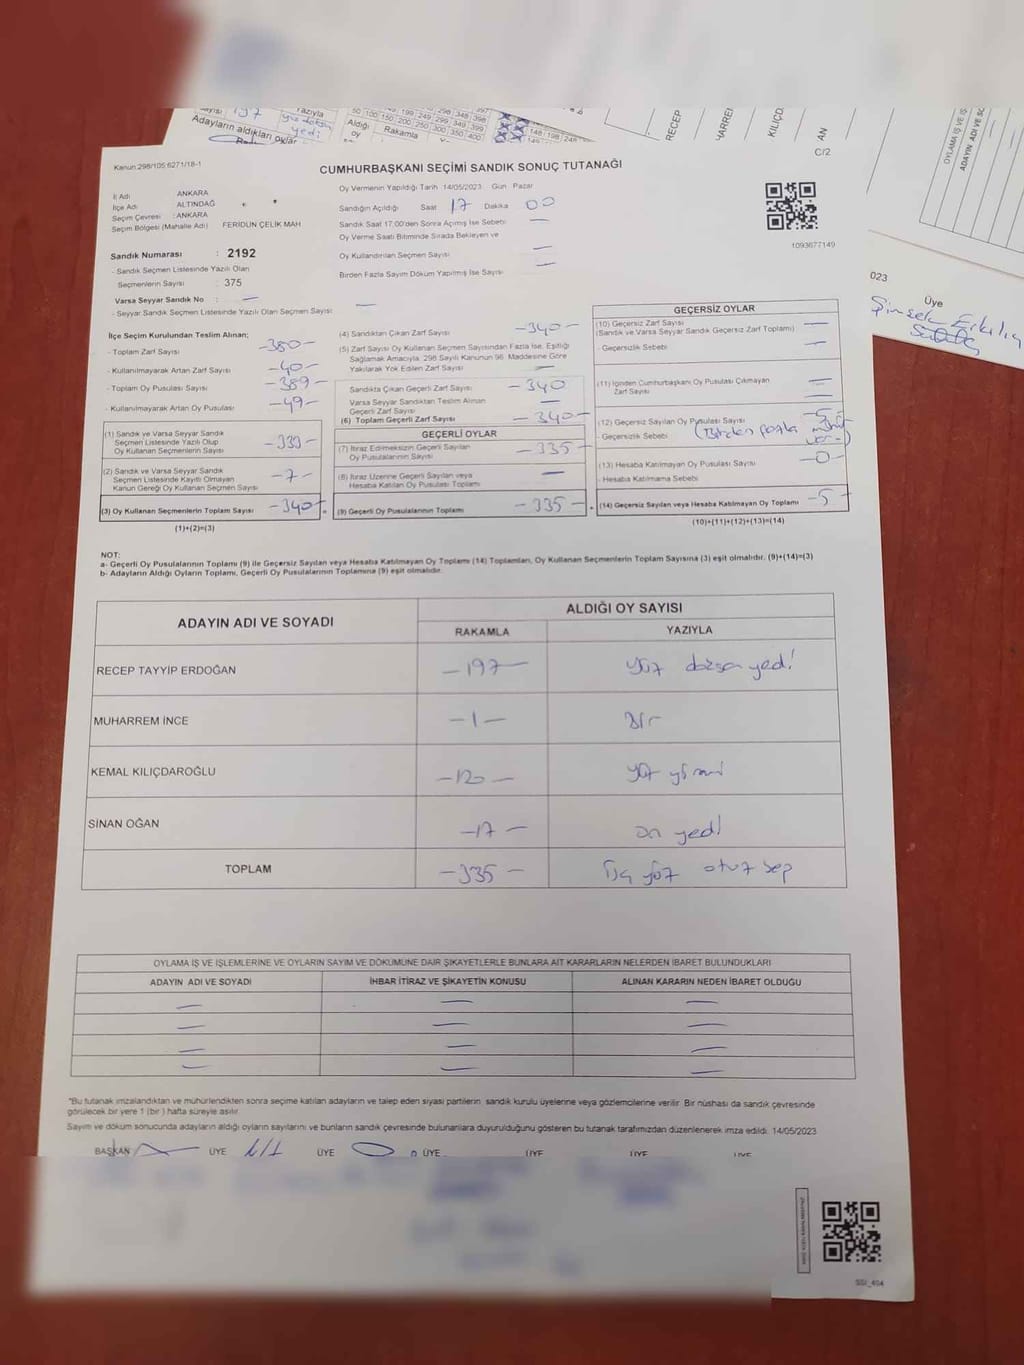 197
Yazıyla
yüz doksan
yedi
Adayların aldıkları oylar
Aldığı
oy
Rakamla
RECEP
KILIÇD
AN
Kanun:298/105:6271/18-1
C/2
CUMHURBAŞKANI SEÇİMİ SANDIK SONUÇ TUTANAĞI
İl Adı ANKARA
İlçe Adı ALTINDAĞ
Seçim Çevresi : ANKARA
Seçim Bölgesi (Mahalle Adı) FERİDUN ÇELİK MAH
Oy Vermenin Yapıldığı Tarih 14/05/2023 Gün Pazar
Sandığın Açıldığı Saat 17 Dakika 00
Sandık Saat 17:00'den Sonra Açımış İse Sebebi —
Oy Verme Saati Bitiminde Sırada Bekleyen ve
Oy Kullandırılan Seçmen Sayısı —
Birden Fazla Sayım Döküm Yapılmış İse Sayısı —
1093677149
Sandık Numarası : 2192
- Sandık Seçmen Listesinde Yazılı Olan
Seçmenlerin Sayısı : 375
Varsa Seyyar Sandık No : —
- Seyyar Sandık Seçmen Listesinde Yazılı Olan Seçmen Sayısı —
İlçe Seçim Kurulundan Teslim Alınan;
- Toplam Zarf Sayısı -380-
- Kullanılmayarak Artan Zarf Sayısı -40-
- Toplam Oy Pusulası Sayısı -389-
- Kullanılmayarak Artan Oy Pusulası -49-
(1) Sandık ve Varsa Seyyar Sandık
Seçmen Listesinde Yazılı Olup
Oy Kullanan Seçmenlerin Sayısı -333-
(2) Sandık ve Varsa Seyyar Sandık
Seçmen Listesinde Kayıtlı Olmayan
Kanun Gereği Oy Kullanan Seçmen Sayısı -7-
(3) Oy Kullanan Seçmenlerin Toplam Sayısı -340-
(1)+(2)=(3)
(4) Sandıktan Çıkan Zarf Sayısı -340-
(5) Zarf Sayısı Oy Kullanan Seçmen Sayısından Fazla İse, Eşitliği
Sağlamak Amacıyla, 298 Sayılı Kanunun 98. Maddesine Göre
Yakılarak Yok Edilen Zarf Sayısı —
Sandıkta Çıkan Geçerli Zarf Sayısı -340
Varsa Seyyar Sandıktan Teslim Alınan
Geçerli Zarf Sayısı —
(6) Toplam Geçerli Zarf Sayısı -340-
GEÇERLİ OYLAR
(7) İtiraz Edilmeksizin Geçerli Sayılan
Oy Pusulalarının Sayısı -335-
(8) İtiraz Üzerine Geçerli Sayılan veya
Hesaba Katılan Oy Pusulası Toplamı —
= (9) Geçerli Oy Pusulalarının Toplamı -335-
GEÇERSİZ OYLAR
(10) Geçersiz Zarf Sayısı —
(Sandık ve Varsa Seyyar Sandık Geçersiz Zarf Toplamı)
- Geçersizlik Sebebi —
(11) İçinden Cumhurbaşkanı Oy Pusulası Çıkmayan
Zarf Sayısı —
(12) Geçersiz Sayılan Oy Pusulası Sayısı -5-
- Geçersizlik Sebebi (Birden fazla mühür
var-)
(13) Hesaba Katılmayan Oy Pusulası Sayısı -0-
- Hesaba Katılmama Sebebi
+ (14) Geçersiz Sayılan veya Hesaba Katılmayan Oy Toplamı -5-
(10)+(11)+(12)+(13)=(14)
NOT:
a- Geçerli Oy Pusulalarının Toplamı (9) ile Geçersiz Sayılan veya Hesaba Katılmayan Oy Toplamı (14) Toplamları, Oy Kullanan Seçmenlerin Toplam Sayısına (3) eşit olmalıdır. (9)+(14)=(3)
b- Adayların Aldığı Oyların Toplamı, Geçerli Oy Pusulalarının Toplamına (9) eşit olmalıdır.
ADAYIN ADI VE SOYADI
ALDIĞI OY SAYISI
RAKAMLA YAZIYLA
RECEP TAYYİP ERDOĞAN -197- yüz doksan yedi
MUHARREM İNCE -1- Bir
KEMAL KILIÇDAROĞLU -120- yüz yirmi
SİNAN OĞAN -17- on yedi
TOPLAM -335- üç yüz otuz beş
OYLAMA İŞ VE İŞLEMLERİNE VE OYLARIN SAYIM VE DÖKÜMÜNE DAİR ŞİKAYETLERLE BUNLARA AİT KARARLARIN NELERDEN İBARET BULUNDUKLARI
ADAYIN ADI VE SOYADI İHBAR İTİRAZ VE ŞİKAYETİN KONUSU ALINAN KARARIN NEDEN İBARET OLDUĞU
— — —
— — —
— — —
— — —
"Bu tutanak imzalandıktan ve mühürlendikten sonra seçime katılan adayların ve talep eden siyasi partilerin sandık kurulu üyelerine veya gözlemcilerine verilir. Bir nüshası da sandık çevresinde
görülecek bir yere 1 (bir) hafta süreyle asılır.
Sayım ve döküm sonucunda adayların aldığı oyların sayılarını ve bunların sandık çevresinde bulunanlara duyurulduğunu gösteren bu tutanak tarafımızdan düzenlenerek imza edildi. 14/05/2023
BAŞKAN ÜYE ÜYE ÜYE ÜYE ÜYE ÜYE
SSI_404
023
Üye